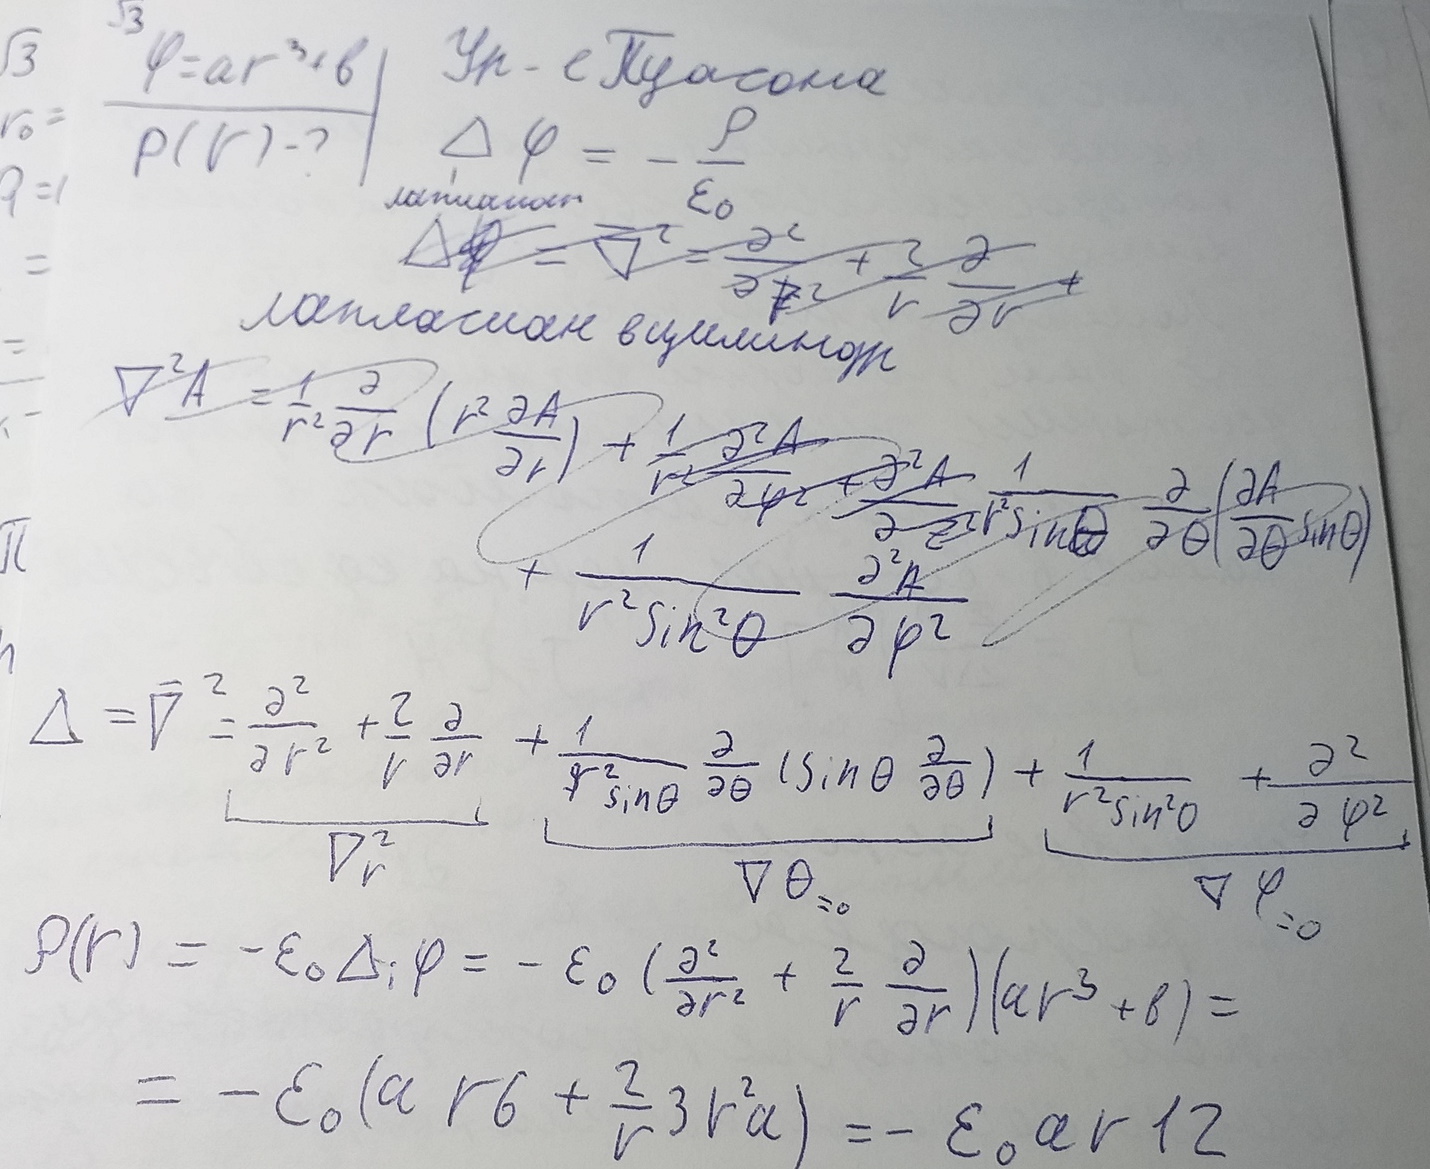 √3
φ = ar³ + в
ρ(r) - ?
√3
r₀ =
q = 1
=
=
π
Ур - е Пуасона
Δφ = - ρ/ε₀
лапласиан
Δφ = ∇² = ∂²/∂r² + 2/r ∂/∂r +
лапласиан в цилиндр
∇²A = 1/r² ∂/∂r (r² ∂A/∂r) + 1/r² ∂²A/∂φ² + ∂²A/∂z² 1/(r² sinθ) ∂/∂θ (∂A/∂θ sinθ)
+ 1/(r² sin²θ) ∂²A/∂φ²
Δ = ∇̄² = ∂²/∂r² + 2/r ∂/∂r + 1/(r² sinθ) ∂/∂θ (sinθ ∂/∂θ) + 1/(r² sin²θ) + ∂²/∂φ²
∇r² ∇θ =0 ∇φ =0
ρ(r) = -ε₀Δ;φ = -ε₀(∂²/∂r² + 2/r ∂/∂r)(ar³ + в) =
= -ε₀(a r6 + 2/r 3r²a) = - ε₀ar12